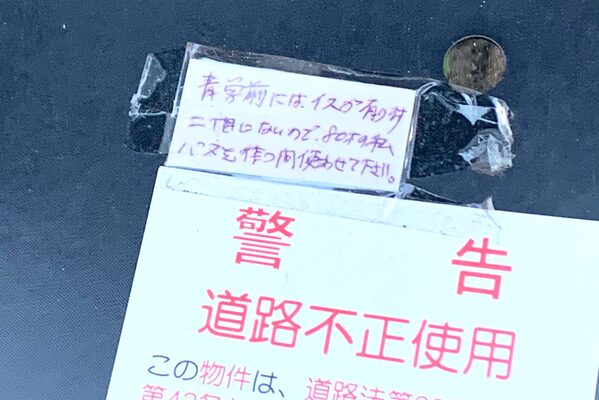 青学前には、イスが有りますが
二個にないので、80才の私
バスを待つ間使わせて下さい。
警告
道路不正使用
この物件は、道路法第
第43条